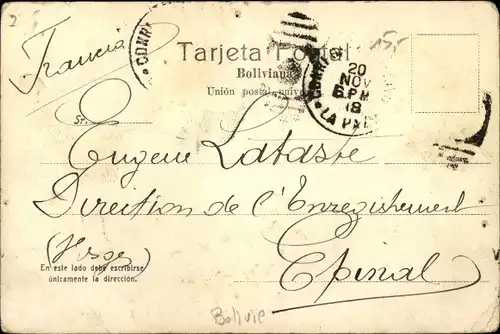 2
CORR
15,-
Francia
Tarjeta Postal
Boliviana
Unión postal univer
CORR
20
NOV
6 PM
18
LA PAZ
Sr.
Eugène Lataste
Direction de l'Enregistrement
(Vosges)
En este lado debe escribirse
únicamente la dirección.
Epinal
Bolivie